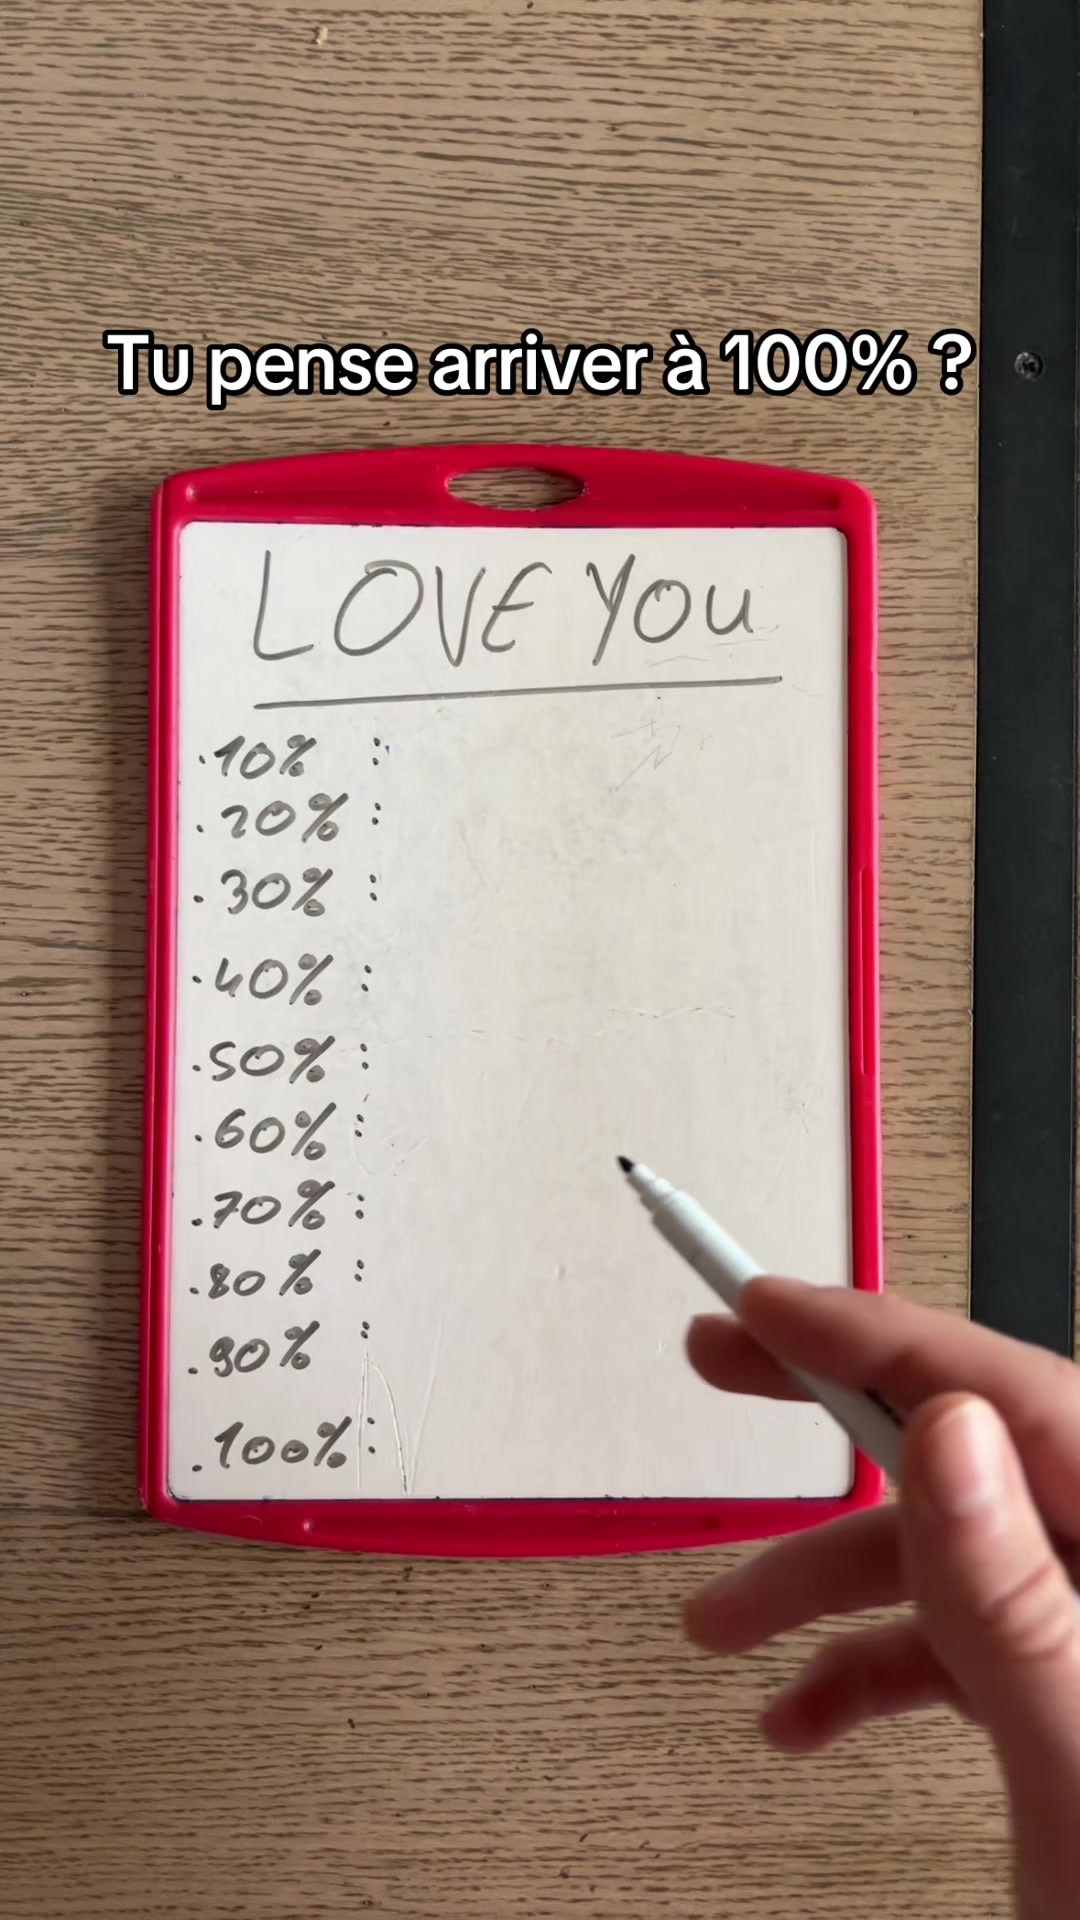 Tu pense arriver à 100% ?
LOVE YOU
.10% :
.20% :
.30% :
.40% :
.50% :
.60% :
.70% :
.80% :
.90% :
.100% :